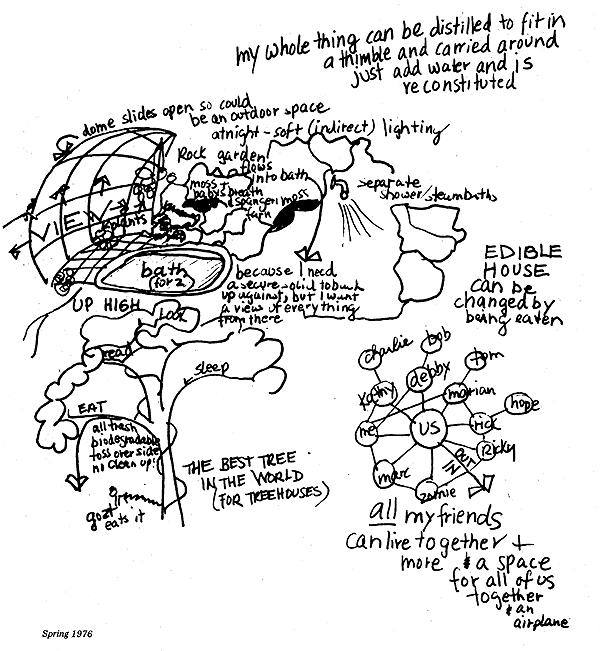 my whole thing can be distilled to fit in
a thimble and carried around
just add water and is
reconstituted
dome slides open so could
be an outdoor space
at night - soft (indirect) lighting
Rock garden
flows
into bath
moss
babys breath
aspanger moss
farn
separate
shower/steambaths
VIEW
plants
bath
(for 2)
because I need
a secure solid to back
up against, but I want
a view of everything
from there
UP HIGH
EDIBLE
HOUSE
can be
changed by
being eaten
look
read
sleep
EAT
all trash
biodegradable
toss over side
no clean up!
goat
eats it
THE BEST TREE
IN THE WORLD
(FOR TREEHOUSES)
charlie
bob
tom
kathy
debby
marian
hope
me
US
rick
Ricky
marc
zomie
OUT
IN
all my friends
can live together +
more & a space
for all of us
together
& an
airplane
Spring 1976